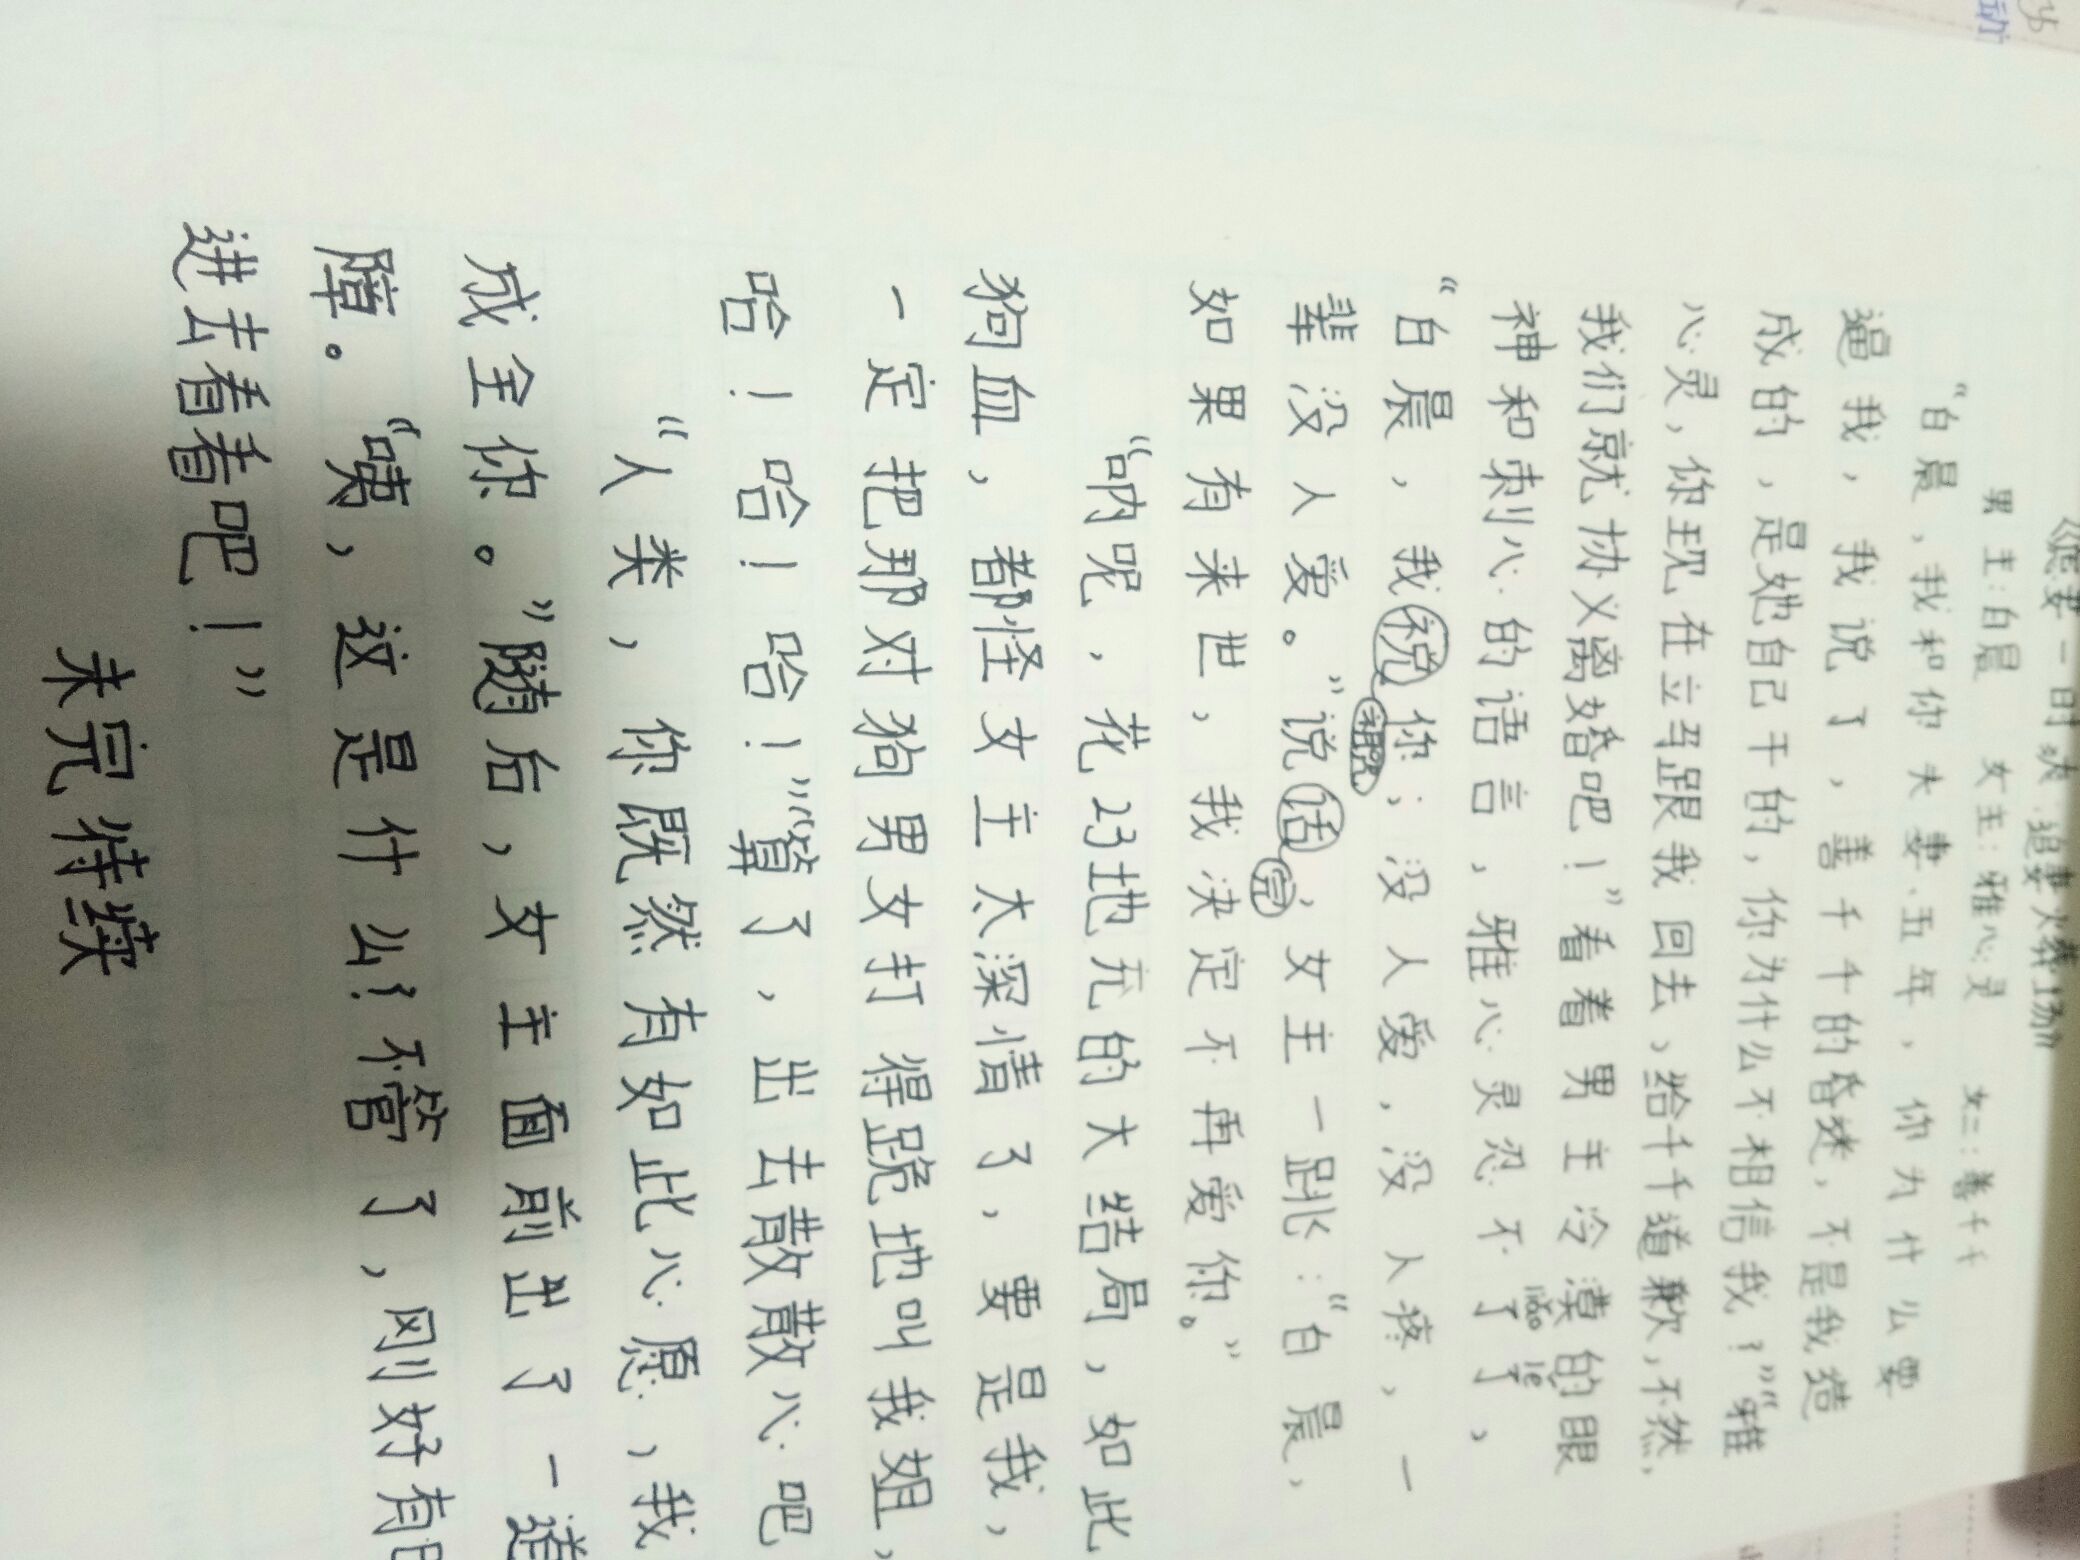 《爽 一时爽 追妻火葬场》
男主：白晨 女主：雅心灵 女二：善千千
“白晨，我和你夫妻五年，你为什么要
逼我，我说了，善千千的昏迷，不是我造
成的，是她自己干的，你为什么不相信我？”“雅
心灵，你现在立马跟我回去，给千千道歉，不然，
我们就协义离婚吧！”看着男主冷漠的眼
神和刺心的语言，雅心灵忍不了了，
liǎo le
“白晨，我祝你；没人爱，没人疼，一
诅咒
辈没人爱。”说话，女主一跳：“白晨，
完
如果有来世，我决定不再爱你。”
“呐呢，花23地元的大结局，如此
狗血，都怪女主太深情了，要是我，
一定把那对狗男女打得跪地叫我姐，
哈！哈！哈！”“算了，出去散散心吧
“人类，你既然有如此心愿，我
成全你。”随后，女主面前出了一道
障。“咦，这是什么？不管了，刚好有
进去看看吧！”
未完待续
动